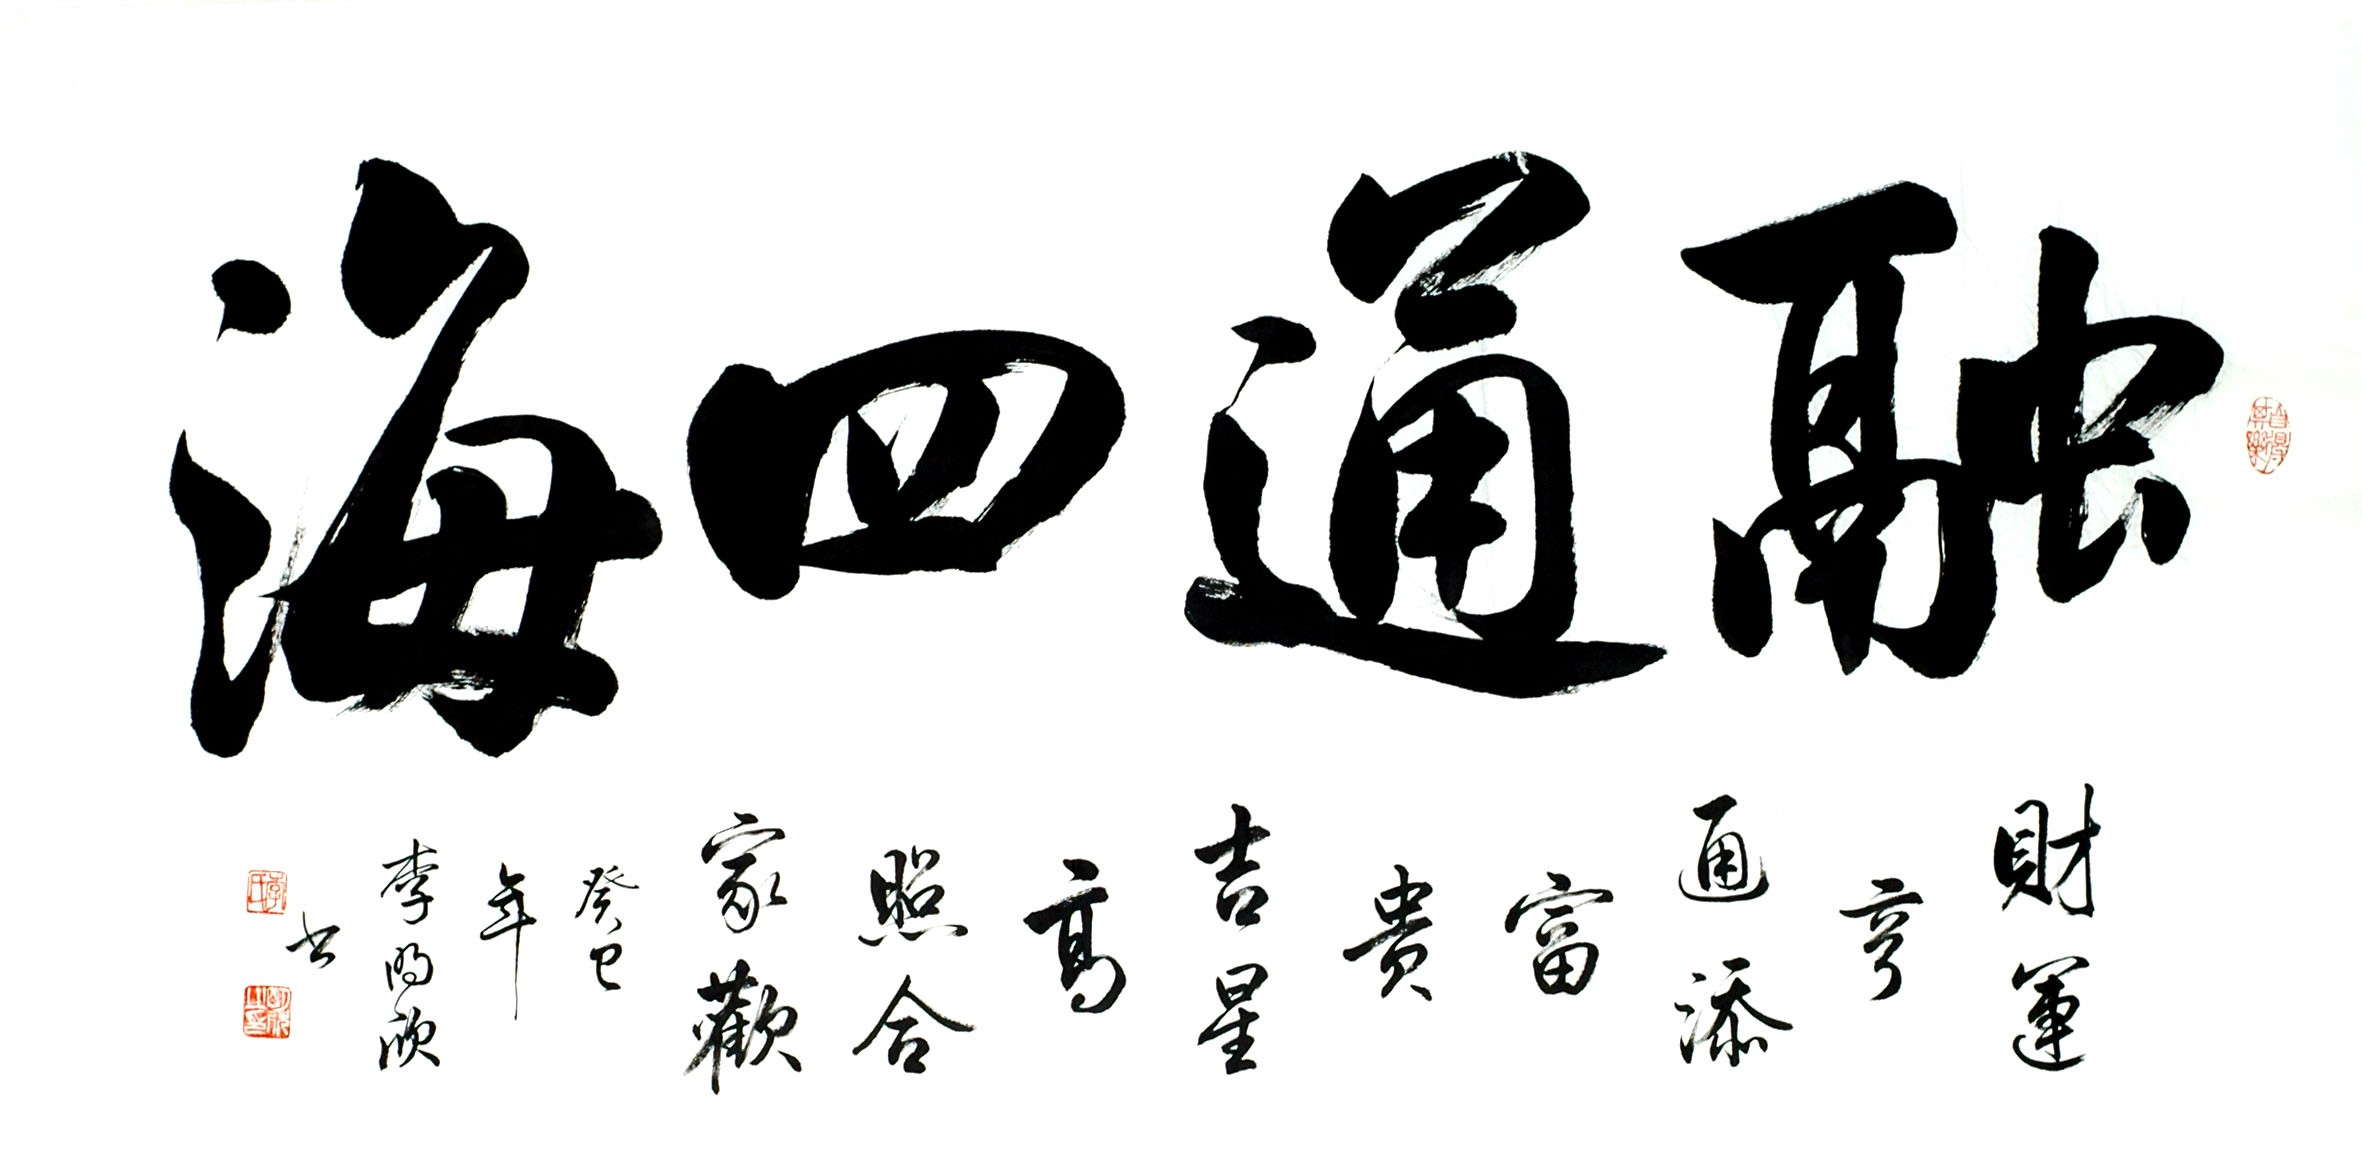 自得其樂
融通四海
財運
亨
通添
富
貴
吉星
高
照合
家歡
癸巳
年
李明欣
书